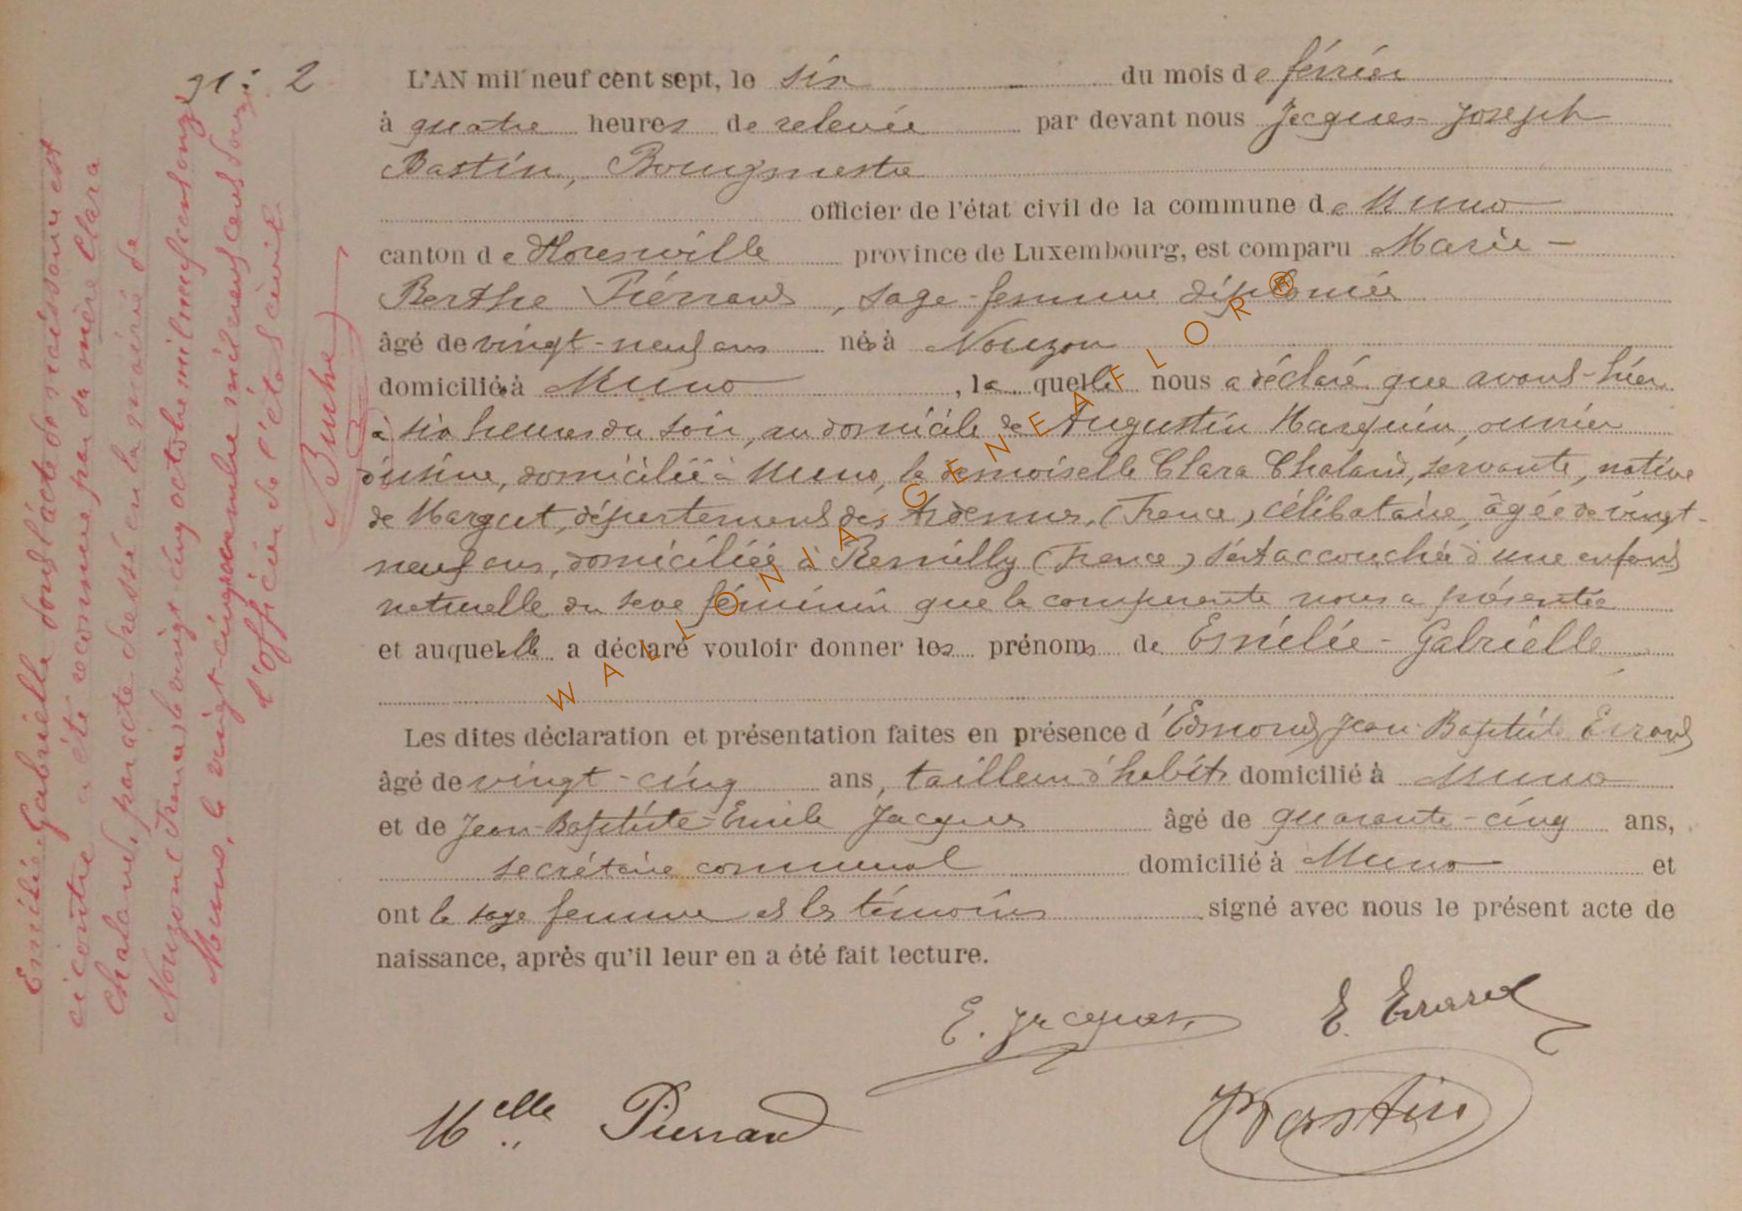 n: 2
L'AN mil neuf cent sept, le six du mois de février
à quatre heures de relevée par devant nous Jacques-Joseph
Bastin, Bourgmestre
officier de l'état civil de la commune de Muno
canton de Florenville province de Luxembourg, est comparu Marie-
Berthe Piérrard, sage-femme diplomée
âgé de vingt-neuf ans née à Nouzon
domicilié à Muno, laquelle nous a déclaré que avant-hier
à six heures du soir, au domicile de Augustin Marquin, ouvrier
d'usine, domicilié à Muno, la demoiselle Clara Chaland, servante, native
de Margut, département des Ardennes, (France), célibataire, âgée de vingt-
neuf ans, domiciliée à Remilly (France) s'est accouchée d'une enfant
naturelle du sexe féminin que la comparante nous a présentée
et auquelle a déclaré vouloir donner les prénoms de Emélie-Gabrielle
Les dites déclaration et présentation faites en présence d'Edmond Jean-Baptiste Evrard
âgé de vingt-cinq ans, tailleur d'habits domicilié à Muno
et de Jean-Baptiste-Emile Jacques âgé de quarante-cinq ans,
secrétaire communal domicilié à Muno et
ont la sage femme et les témoins signé avec nous le présent acte de
naissance, après qu'il leur en a été fait lecture.
E. Jacques E. Evrard
Melle Pierrard Bastin
Emélie Gabrielle dont l'acte de naissance est
ci contre a été reconnue par sa mère Clara
Chaland, par acte dressé en la mairie de
Nouzon (France) le vingt cinq octobre mil neuf cent onze
Muno, le vingt-cinq mil neuf cent
l'officier de l'état civil
WALLONIA-GENEAFLOR®